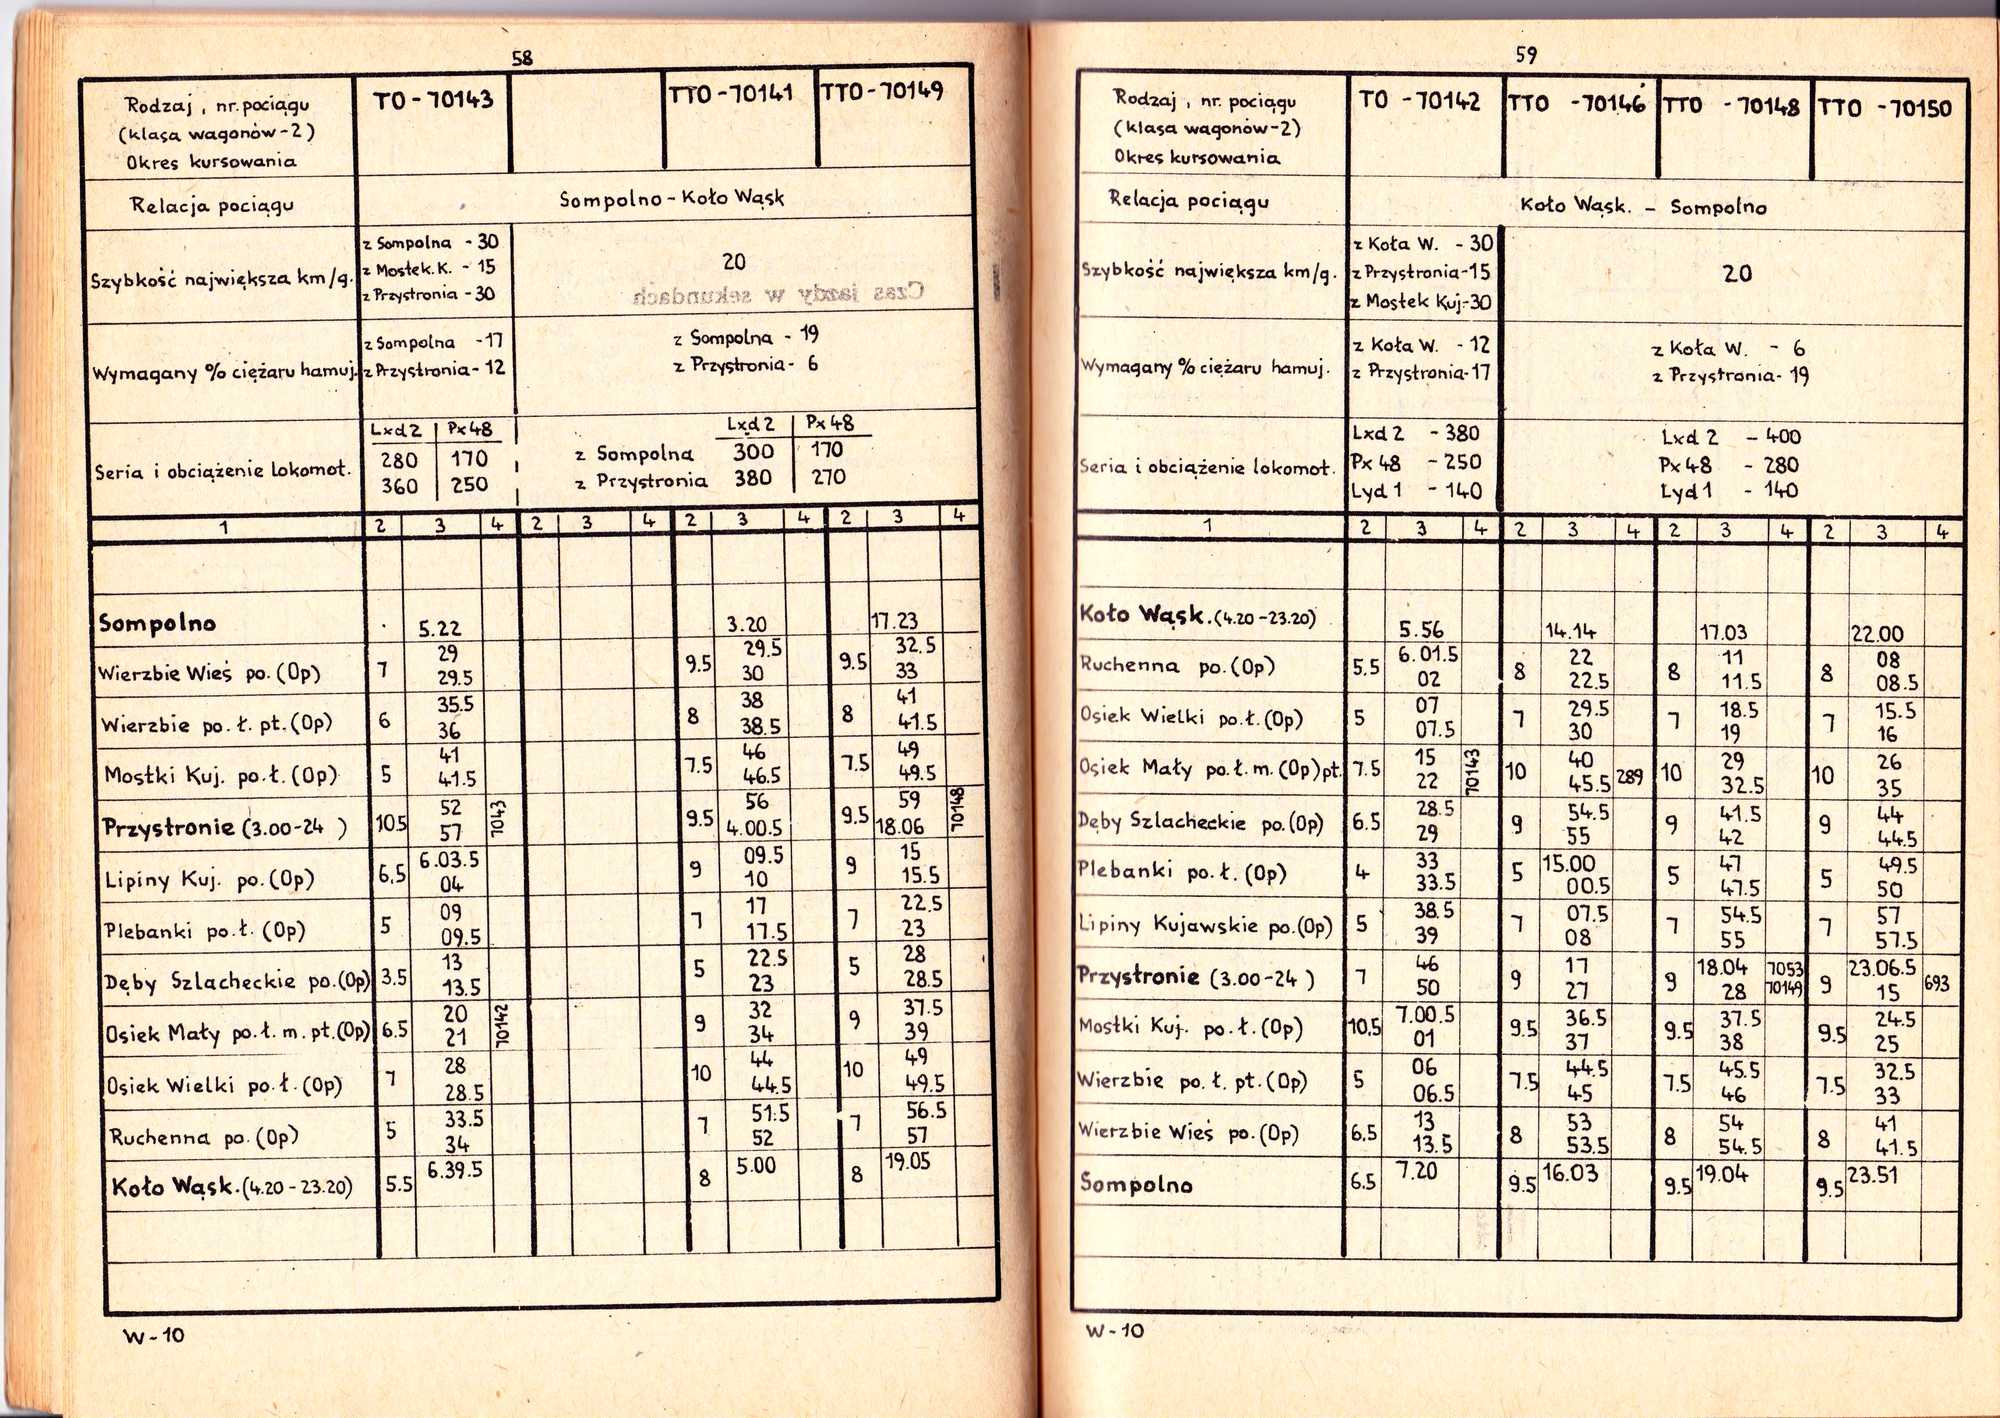 58
Rodzaj, nr. pociągu TO-70143 TTO-70141 TTO-70149
(klasa wagonów-2)
Okres kursowania
Relacja pociągu Sompolno - Koło Wąsk
z Sompolna - 30
Szybkość największa km/g. z Mostek.K. - 15 20
z Przystronia - 30
Czas jazdy w sekundach
z Sompolna - 17 z Sompolna - 19
Wymagany % ciężaru hamuj. z Przystronia - 12 z Przystronia - 6
Lxd2 Px48 Lxd2 Px48
Seria i obciążenie lokomot. 280 170 z Sompolna 300 170
360 250 z Przystronia 380 270
1 2 3 4 2 3 4 2 3 4 2 3 4
Sompolno 5.22 3.20 17.23
29 29.5 32.5
Wierzbie Wieś po. (Op) 7 29.5 9.5 30 9.5 33
35.5 38 41
Wierzbie po. ł. pt. (Op) 6 36 8 38.5 8 41.5
41 46 49
Mostki Kuj. po.ł. (Op) 5 41.5 7.5 46.5 7.5 49.5
52 56 59
Przystronie (3.00-24 ) 10.5 57 7043 9.5 4.00.5 9.5 18.06 70148
6.03.5 09.5 15
Lipiny Kuj. po. (Op) 6.5 04 9 10 9 15.5
09 17 22.5
Plebanki po.ł. (Op) 5 09.5 7 17.5 7 23
13 22.5 28
Dęby Szlacheckie po.(Op) 3.5 13.5 5 23 5 28.5
20 32 37.5
Osiek Mały po.ł.m.pt.(Op) 6.5 21 70142 9 34 9 39
28 44 49
Osiek Wielki po.ł. (Op) 7 28.5 10 44.5 10 49.5
33.5 51.5 56.5
Ruchenna po. (Op) 5 34 7 52 7 57
6.39.5 5.00 19.05
Koło Wąsk. (4.20 - 23.20) 5.5 8 8
W-10
59
Rodzaj, nr. pociągu TO -70142 TTO -70146 TTO -70148 TTO -70150
(klasa wagonów-2)
Okres kursowania
Relacja pociągu Koło Wąsk. - Sompolno
z Koła W. - 30
Szybkość największa km/g. z Przystronia-15 20
z Mostek Kuj.-30
z Koła W. - 12 z Koła W. - 6
Wymagany % ciężaru hamuj. z Przystronia-17 z Przystronia- 19
Lxd 2 - 380 Lxd 2 - 400
Seria i obciążenie lokomot. Px 48 - 250 Px 48 - 280
Lyd 1 - 140 Lyd 1 - 140
1 2 3 4 2 3 4 2 3 4 2 3 4
Koło Wąsk. (4.20-23.20) 5.56 14.14 17.03 22.00
6.01.5 22 11 08
Ruchenna po. (Op) 5.5 02 8 22.5 8 11.5 8 08.5
07 29.5 18.5 15.5
Osiek Wielki po.ł. (Op) 5 07.5 7 30 7 19 7 16
15 40 29 26
Osiek Mały po.ł.m.(Op)pt. 7.5 22 70143 10 45.5 289 10 32.5 10 35
28.5 54.5 41.5 44
Dęby Szlacheckie po.(Op) 6.5 29 9 55 9 42 9 44.5
33 15.00 47 49.5
Plebanki po.ł. (Op) 4 33.5 5 00.5 5 47.5 5 50
38.5 07.5 54.5 57
Lipiny Kujawskie po.(Op) 5 39 7 08 7 55 7 57.5
46 17 18.04 7053 23.06.5
Przystronie (3.00-24 ) 7 50 9 27 9 28 70149 9 15 693
7.00.5 36.5 37.5 24.5
Mostki Kuj. po.ł. (Op) 10.5 01 9.5 37 9.5 38 9.5 25
06 44.5 45.5 32.5
Wierzbie po. ł. pt. (Op) 5 06.5 7.5 45 7.5 46 7.5 33
13 53 54 41
Wierzbie Wieś po. (Op) 6.5 13.5 8 53.5 8 54.5 8 41.5
7.20 16.03 19.04 23.51
Sompolno 6.5 9.5 9.5 9.5
W-10